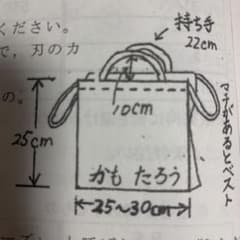 ください。
で，刃のカ
の。
持ち手
22cm
10cm
25cm
かも たろう
25～30cm
マチがあるとベスト